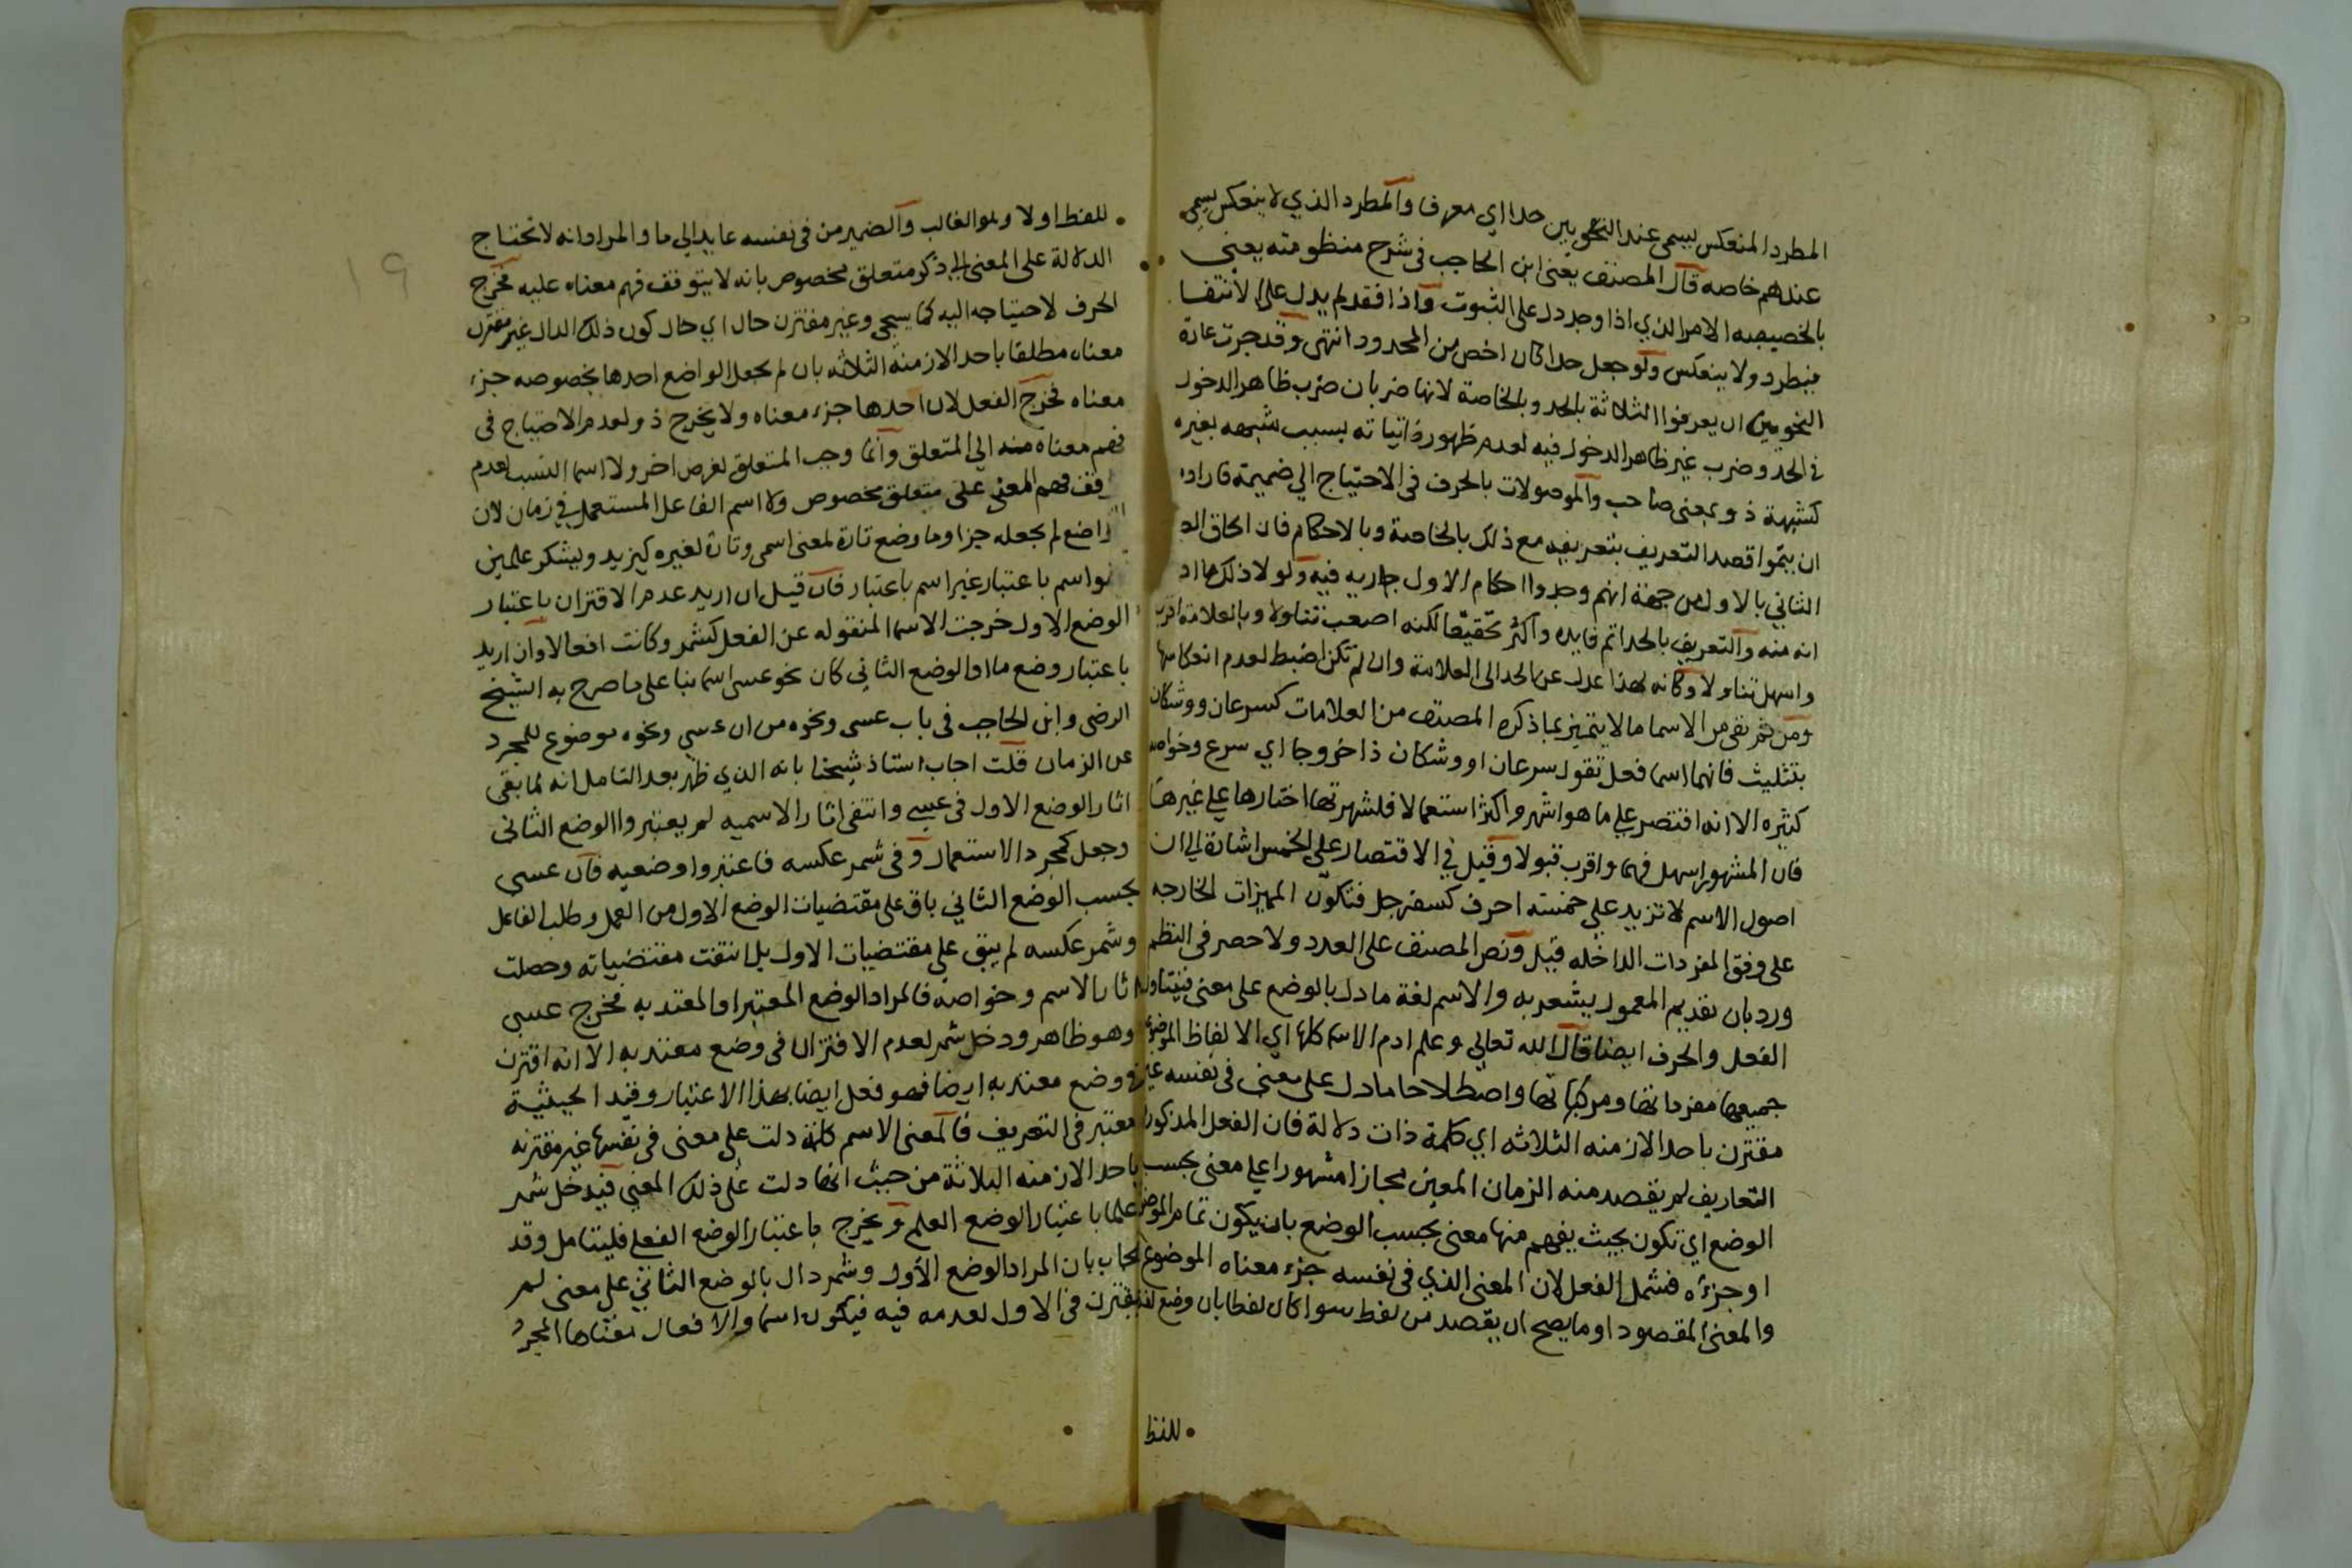 المطرد المنعكس يسمى عند النحويين حدا اي معرفا والمطرد الذي لا ينعكس يسمى
عندهم خاصه قال المصنف يعني ابن الحاجب في شرح منظومته يعني
بالخصيصه الامر الذي اذا وجد دل على الثبوت واذا فقد لم يدل على الانتفا
فيطرد ولا ينعكس ولو جعل حدا كان اخص من المحدود انتهى وقد جرت عادة
النحويين ان يعرفوا الثلاثة بالحد وبالخاصة لانها ضربان ضرب ظاهر الدخول
في الحد وضرب غير ظاهر الدخول فيه لعدم ظهور ذاتياته بسبب شبهه بغيره
كشبهة ذو بمعنى صاحب والموصولات بالحرف في الاحتياج الى ضميمة فارادوا
ان يتموا قصد التعريف بتعريفه مع ذلك بالخاصة وبالاحكام فان الحاق
الثاني بالاول من جهة انهم وجدوا احكام الاول جاريه فيه ولولا ذلك ما
انه منه والتعريف بالحد اتم فايده واكثر تحقيقا لكنه اصعب تناولا وبالعلامة اقرب
واسهل تناولا وكانه لهذا عدل عن الحد الى العلامة وان لم تكن اضبط لعدم انعكاسها
ومن ثم بقي من الاسما ما لا يتميز بما ذكره المصنف من العلامات كسرعان ووشكان
بتثليث فانهما اسما فعل تقول سرعان او وشكان ذا خروجا اي سرع وخواصه
كثيره الا انه اقتصر على ما هو اشهر واكثر استعمالا فلشهرتها اختارها على غيرها
فان المشهور اسهل فهما واقرب قبولا وقيل في الاقتصار على الخمس اشارة الى ان
اصول الاسم لا تزيد على خمسة احرف كسفرجل فتكون المميزات الخارجه
على وفق المفردات الداخله قيل ونص المصنف على العدد ولا حصر في النظم
ورد بان تقديم المعمول يشعر به والاسم لغة ما دل بالوضع على معنى فيتناول
الفعل والحرف ايضا قال الله تعالى وعلم ادم الاسما كلها اي الالفاظ الموضوعة
جميعها مفرداتها ومركباتها واصطلاحا ما دل على معنى في نفسه غير
مقترن باحد الازمنه الثلاثه اي كلمة ذات دلالة فان الفعل المذكور في
التعاريف لم يقصد منه الزمان المعين مجازا مشهورا على معنى بحسب
الوضع اي تكون بحيث يفهم منها معنى بحسب الوضع بان يكون تمام الموضوع
او جزءه فشمل الفعل لان المعنى الذي في نفسه جزء معناه الموضوع
والمعنى المقصود او ما يصح ان يقصد من لفظ سوا كان لفظا بان وضع لفظ
للفظ
للفظ اولا وهو الغالب والضمير من في نفسه عايد الى ما والمراد انه لا تحتاج
الدلالة على المعنى الى ذكر متعلق مخصوص بانه لا يتوقف فهم معناه عليه فخرج
الحرف لاحتياجه اليه كما يسجي وغير مقترن حال اي حال كون ذلك الدال غير مقترن
معناه مطلقا باحد الازمنة الثلاثه بان لم يجعل الواضع احدها بخصوصه جزء
معناه فخرج الفعل لان احدها جزء معناه ولا يخرج ذو لعدم الاحتياج في
فهم معناه منه الى المتعلق وانما وجب المتعلق لغرض اخر ولا اسما النسب لعدم
وقف فهم المعنى على متعلق مخصوص ولا اسم الفاعل المستعمل في زمان لان
الواضع لم يجعله جزا وما وضع تارة لمعنى اسمي وتارة لغيره كيزيد ويشكر علمين
هو اسم باعتبار غير اسم باعتبار فان قيل ان اريد عدم الاقتران باعتبار
الوضع الاول خرجت الاسما المنقوله عن الفعل كشمر وكانت افعالا وان اريد
باعتبار وضع ما او الوضع الثاني كان نحو عسى اسما بنا على ما صرح به الشيخ
الرضي وابن الحاجب في باب عسى ونحوه من ان عسى ونحوه موضوع للمجرد
عن الزمان قلت اجاب استاذ شيخنا بانه الذي ظهر بعد التامل انه لما بقي
اثار الوضع الاول في عسى وانتفى اثار الاسميه لم يعتبروا الوضع الثاني
وجعل كمجرد الاستعمال وفي شمر عكسه فاعتبروا وضعيه فان عسى
بحسب الوضع الثاني باق على مقتضيات الوضع الاول من العمل وطلب الفاعل
وشمر عكسه لم يبق على مقتضيات الاول بل انتفت مقتضياته وحصلت
اثار الاسم وخواصه فالمراد الوضع المعتبر او المعتد به فخرج عسى
وهو ظاهر ودخل شمر لعدم الاقتران في وضع معتد به الا انه اقترن
في وضع معتد به ايضا فهو فعل ايضا بهذا الاعتبار وقيد الحيثية
معتبر في التعريف فالمعنى الاسم كلمة دلت على معنى في نفسها غير مقترنه
باحد الازمنه الثلاثة من حيث انها دلت على ذلك المعنى فيدخل شمر
علما باعتبار الوضع العلم ويخرج باعتبار الوضع الفعلي فليتامل وقد
يجاب بان المراد الوضع الاول وشمر دال بالوضع الثاني على معنى لم
يقترن في الاول لعدمه فيه فيكون اسما والافعال معناها المجرد
١٩